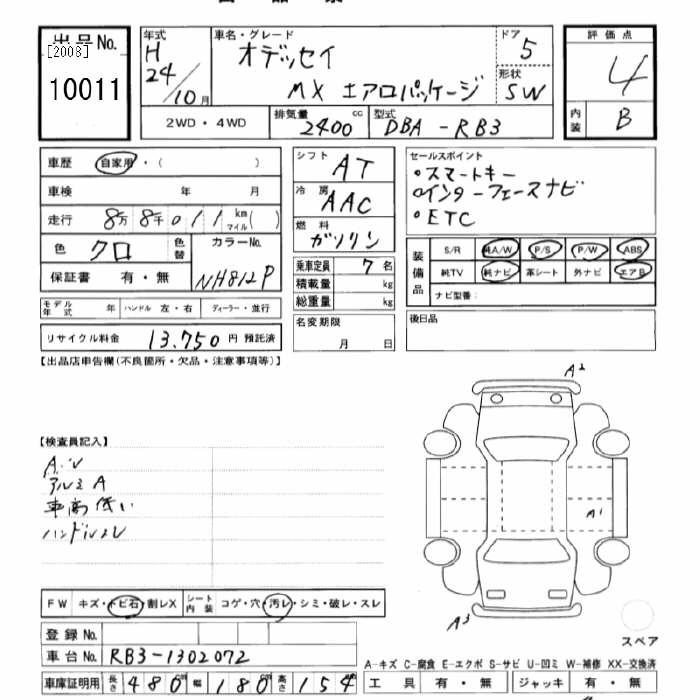 出品No.
[2008]
10011
年式
H
24/10月
車名・グレード
オデッセイ
MX エアロパッケージ
ドア
5
形状
SW
評価点
4
内装
B
2WD・4WD
排気量
2400 cc
型式
DBA-RB3
車歴 自家用・( )
車検 年 月
走行 8万8千011 km マイル( )
色 クロ 色替
カラーNo.
NH812P
保証書 有・無
モデル年式 年 ハンドル 左・右 ディーラー・並行
リサイクル料金 13,750 円 預託済
シフト AT
冷房 AAC
燃料 ガソリン
乗車定員 7 名
積載量 kg
総重量 kg
名変期限
月 日
セールスポイント
・スマートキー
・インターフェースナビ
・ETC
装備品
S/R 純A/W P/S P/W ABS
純TV 純ナビ 革シート 外ナビ エアB
ナビ型番:
後日品
【出品店申告欄(不良箇所・欠品・注意事項等)】
【検査員記入】
アルミA
車高低い
ハンドルスレ
A2
A1
A3
スペア
FW キズ・トビ石・割レX シート内装 コゲ・穴・汚レ・シミ・破レ・スレ
登録No.
車台No. RB3-1302072
車庫証明用 長さ 480 幅 180 高さ 154
A-キズ C-腐食 E-エクボ S-サビ U-凹ミ W-補修 XX-交換済
工具 有・無 ジャッキ 有・無